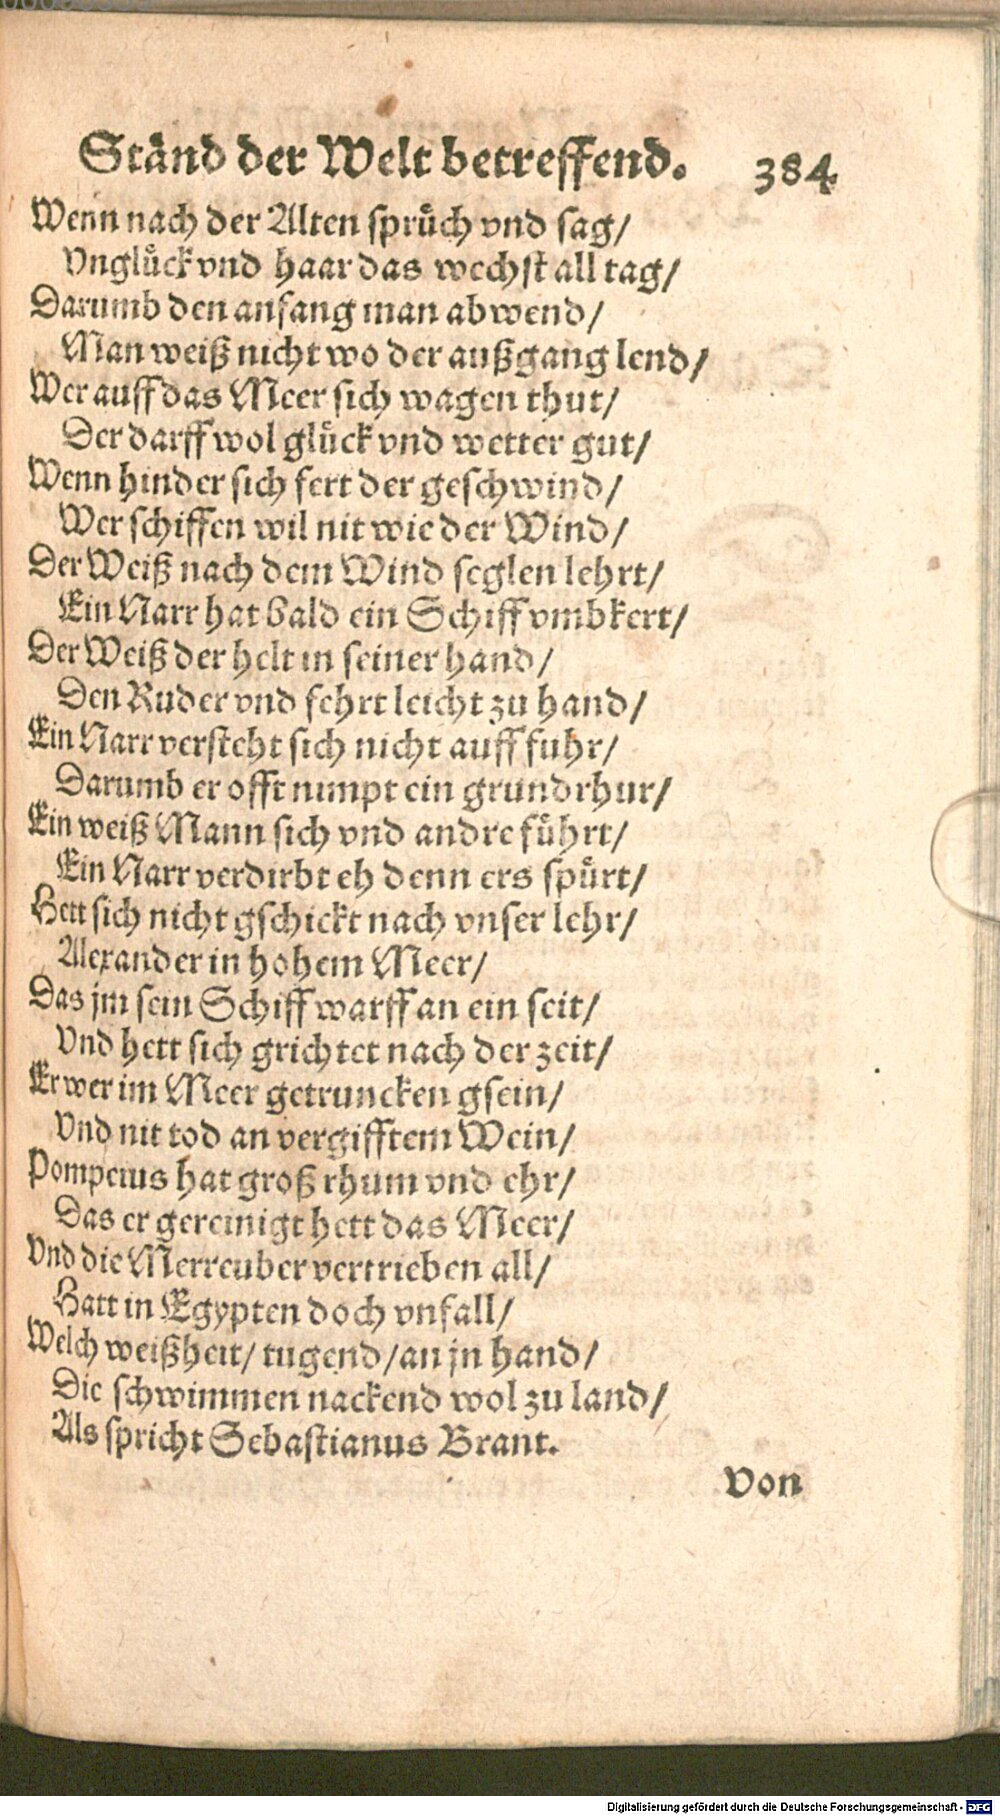 Ständ der Welt betreffend. 384
Wenn nach der Alten sprüch vnd sag/
Vnglück vnd haar das wechst all tag/
Darumb den anfang man abwend/
Man weiß nicht wo der außgang lend/
Wer auff das Meer sich wagen thut/
Der darff wol glück vnd wetter gut/
Wenn hinder sich fert der geschwind/
Wer schiffen wil nit wie der Wind/
Der Weiß nach dem Wind seglen lehrt/
Ein Narr hat bald ein Schiff vmbkert/
Der Weiß der helt in seiner hand/
Den Ruder vnd fehrt leicht zu hand/
Ein Narr versteht sich nicht auff fuhr/
Darumb er offt nimpt ein grundrhur/
Ein weiß Mann sich vnd andre führt/
Ein Narr verdirbt eh denn ers spürt/
Hett sich nicht gschickt nach vnser lehr/
Alexander in hohem Meer/
Das jm sein Schiff warff an ein seit/
Vnd hett sich grichtet nach der zeit/
Er wer im Meer getruncken gsein/
Vnd nit tod an vergifftem Wein/
Pompeius hat groß rhum vnd ehr/
Das er gereinigt hett das Meer/
Vnd die Merreuber vertrieben all/
Hatt in Egypten doch vnfall/
Welch weißheit/ tugend/ an jn hand/
Die schwimmen nackend wol zu land/
Als spricht Sebastianus Brant.
Von
Digitalisierung gefördert durch die Deutsche Forschungsgemeinschaft - DFG